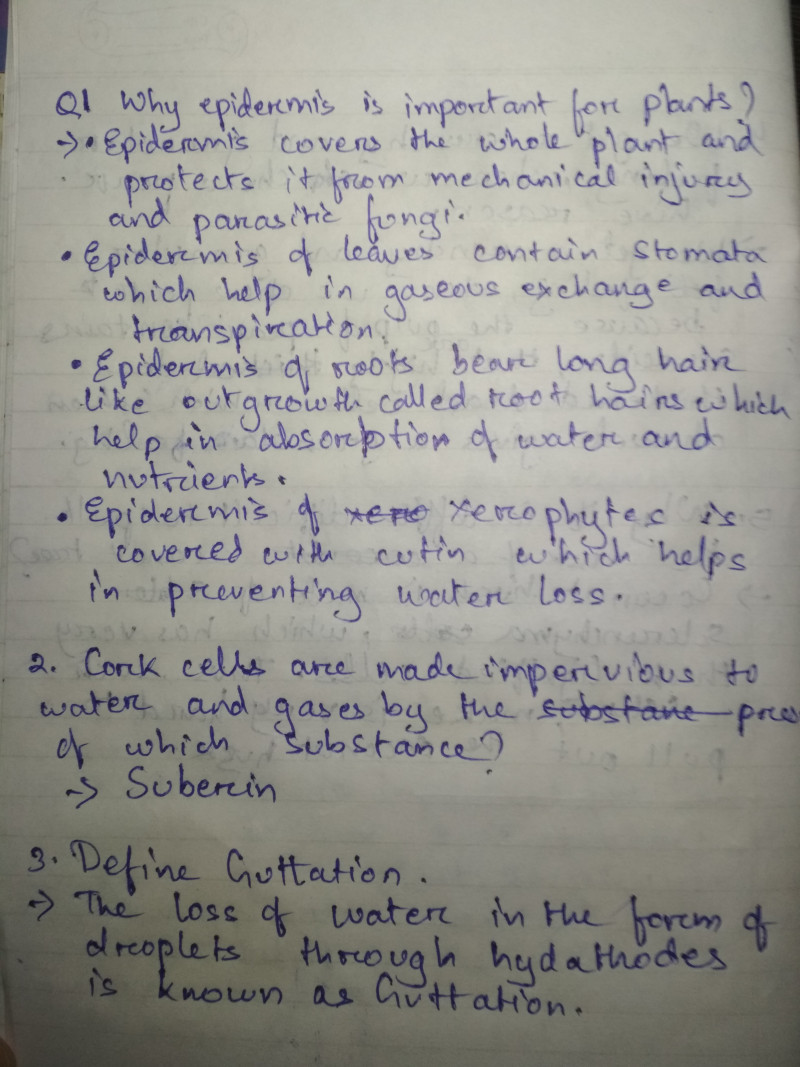 Q1 Why epidermis is important for plants?
→ • Epidermis covers the whole plant and
protects it from mechanical injury
and parasitic fungi.
• Epidermis of leaves contain stomata
which help in gaseous exchange and
transpiration.
• Epidermis of roots bear long hair
like outgrowth called root hairs which
help in absorption of water and
nutrients.
• Epidermis of xero Xerophytes is
covered with cutin which helps
in preventing water loss.
2. Cork cells are made impervious to
water and gases by the substane pres
of which substance?
→ Suberin
3. Define Guttation.
→ The loss of water in the form of
droplets through hydathodes
is known as Guttation.